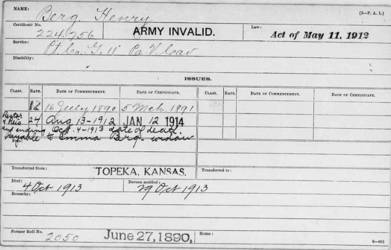 NAME: Berg, Henry (3-F. A. I.)
Certificate No. 224,756 ARMY INVALID. Law: Act of May 11, 1912
Service: Pt. Co. G. 11" Pa V Cav
Disability:
ISSUES.
CLASS. RATE. DATE OF COMMENCEMENT. DATE OF CERTIFICATE. CLASS. RATE. DATE OF COMMENCEMENT. DATE OF CERTIFICATE.
12 16 July 1890 5 Mch 1891
27 Aug 13-1912 JAN 12 1914
and ending Oct. 4-1913 date of death.
Payable to Emma Berg widow
Transferred from TOPEKA, KANSAS. Transferred to:
Died: 4 Oct 1913 Bureau notified: 29 Oct 1913
Remarks:
Former Roll No. 2050 June 27, 1890. Home: